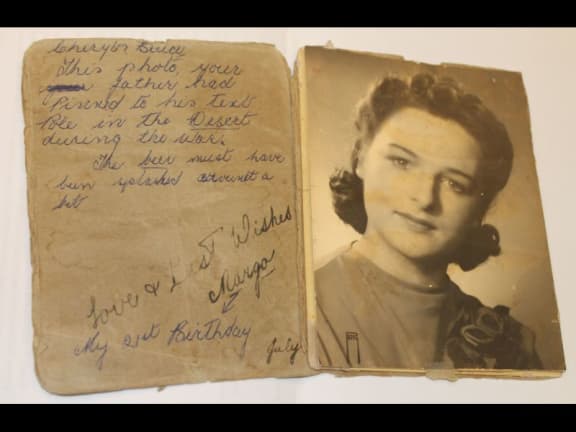 Cheryl & Bruce
This photo, your
father had
Pinned to his tent
Pole in the Desert
during the war.
The beer must have
been splashed around a
bit
Love & Best Wishes
Margo
My 21st Birthday
July